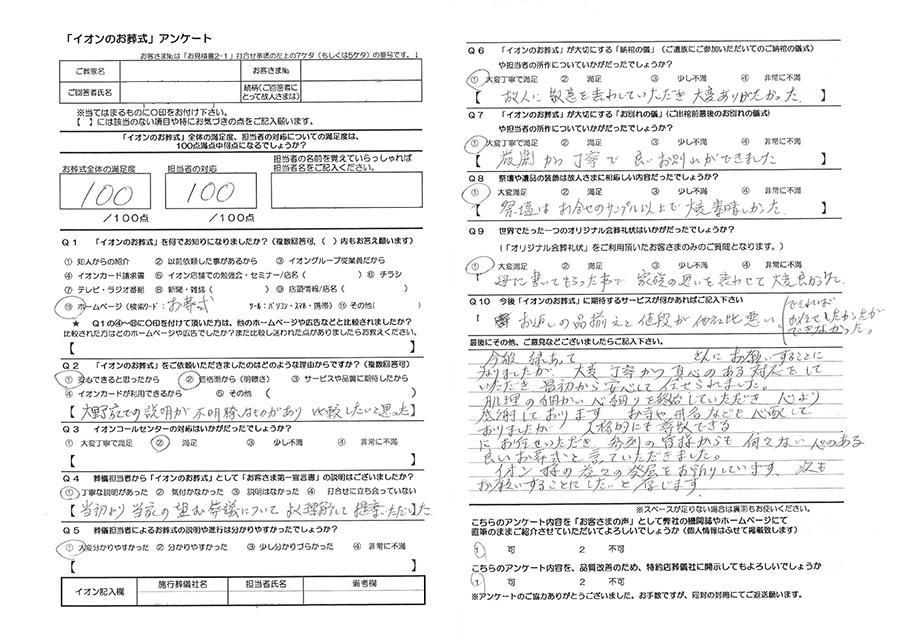 「イオンのお葬式」アンケート
お客さま№は「お見積書2-1」打合せ事項の左上の7ケタ（もしくは5ケタ）の番号です。↓
ご葬家名
お客さま№
ご回答者氏名
続柄(ご回答者に
とって故人さまは)
※当てはまるものに○印をお付け下さい。
【 】には該当のない項目や特にお気づきの点をご記入願います。
「イオンのお葬式」全体の満足度、担当者の対応についての満足度は、
100点満点中何点になるでしょうか？
お葬式全体の満足度
担当者の対応
担当者の名前を覚えていらっしゃれば
担当者名をご記入ください。
100
100
／100点
／100点
Q1 「イオンのお葬式」を何でお知りになりましたか？（複数回答可、（ ）内もお答え願います）
① 知人からの紹介 ② 以前依頼した事があるから ③ イオングループ従業員だから
④ イオンカード請求書 ⑤ イオン店舗での勉強会・セミナー/店名（ ） ⑥ チラシ
⑦ テレビ・ラジオ番組 ⑧ 新聞・雑誌（ ） ⑨ 店頭情報/店名（ ）
⑩ ホームページ（検索ワード：お葬式 ツール：パソコン・スマホ・携帯） ⑪ その他（ ）
★ Q1の④～⑧に○印を付けて頂いた方は、他のホームページや広告などと比較されましたか？
比較された方はどのホームページや広告でしたか？また比較し迷われた点がありましたらお教えください。
【 】
Q2 「イオンのお葬式」をご依頼いただきましたのはどのような理由からですか？（複数回答可）
① 安心できると思ったから ② 価格面から（明瞭さ） ③ サービスや品質に期待したから
④ イオンカードが利用できるから ⑤ その他（ ）
での説明が不明瞭なものがあり 比較したいと思った
Q3 イオンコールセンターの対応はいかがだったでしょうか？
① 大変丁寧で満足 ② 満足 ③ 少し不満 ④ 非常に不満
【 】
Q4 葬儀担当者から「イオンのお葬式」として「お客さま第一宣言書」の説明はございましたか？
① 丁寧な説明があった ② 気付かなかった ③ 説明はなかった ④ 打合せに立ち会っていない
【当初より 当家の望む葬儀について よく理解して 提案いただいた】
Q5 葬儀担当者によるお葬式の説明や進行は分かりやすかったでしょうか？
① 大変分かりやすかった ② 分かりやすかった ③ 少し分かりづらかった ④ 非常に不満
【 】
イオン記入欄
施行葬儀社名
担当者氏名
備考欄
Q6 「イオンのお葬式」が大切にする「納棺の儀」（ご遺族にご参加いただいてのご納棺の儀式）
や担当者の所作についていかがだったでしょうか？
① 大変丁寧で満足 ② 満足 ③ 少し不満 ④ 非常に不満
【 故人に敬意を表わしていただき 大変ありがたかった 】
Q7 「イオンのお葬式」が大切にする「お別れの儀」（ご出棺前最後のお別れの儀式）
や担当者の所作についていかがだったでしょうか？
① 大変丁寧で満足 ② 満足 ③ 少し不満 ④ 非常に不満
【 厳粛かつ丁寧で 良いお別れができました 】
Q8 祭壇や遺品の装飾は故人さまに相応しい内容だったでしょうか？
① 大変満足 ② 満足 ③ 少し不満 ④ 非常に不満
【 祭壇は お任せのサンプル以上で 大変素晴しかった 】
Q9 世界でたった一つのオリジナル会葬礼状はいかがだったでしょうか？
（「オリジナル会葬礼状」をご利用頂いたお客さまのみのご質問となります。）
① 大変満足 ② 満足 ③ 少し不満 ④ 非常に不満
母に書いてもらった事で 家族の思いを表わせて大変良かった
Q10 今後「イオンのお葬式」に期待するサービスが何かあればご記入下さい
お返しの品揃えと値段が他社比悪い
できれば
お任せしたかったが
できなかった。
最後にその他、ご意見などございましたらご記入下さい。
今般 縁あって さんに お願いすることに
なりましたが、大変 丁寧かつ真心のある対応をして
いただき 最初から安心して 任せられました。
肌理の細かい心細りを していただき 心より
感謝しております。 お寺や など 心配して
おりましたが 人格的にも尊敬できる
にお任せいただき 参列の皆様からも 何えない 心のある
良いお葬式と言っていただきました。
イオン様の益々の発展をお祈りしています。次も
お願いすることにしたいと存じます。
※スペースが足りない場合は裏面もお使いください。
こちらのアンケート内容を「お客さまの声」として弊社の機関誌やホームページにて
直筆のままご紹介させていただいてよろしいでしょうか（個人情報はふせて掲載致します）
1 可 2 不可
こちらのアンケート内容を、品質改善のため、特約店葬儀社に開示してもよろしいでしょうか
1 可 2 不可
※アンケートのご協力ありがとうございました。お手数ですが、同封の封筒にてご返送願います。